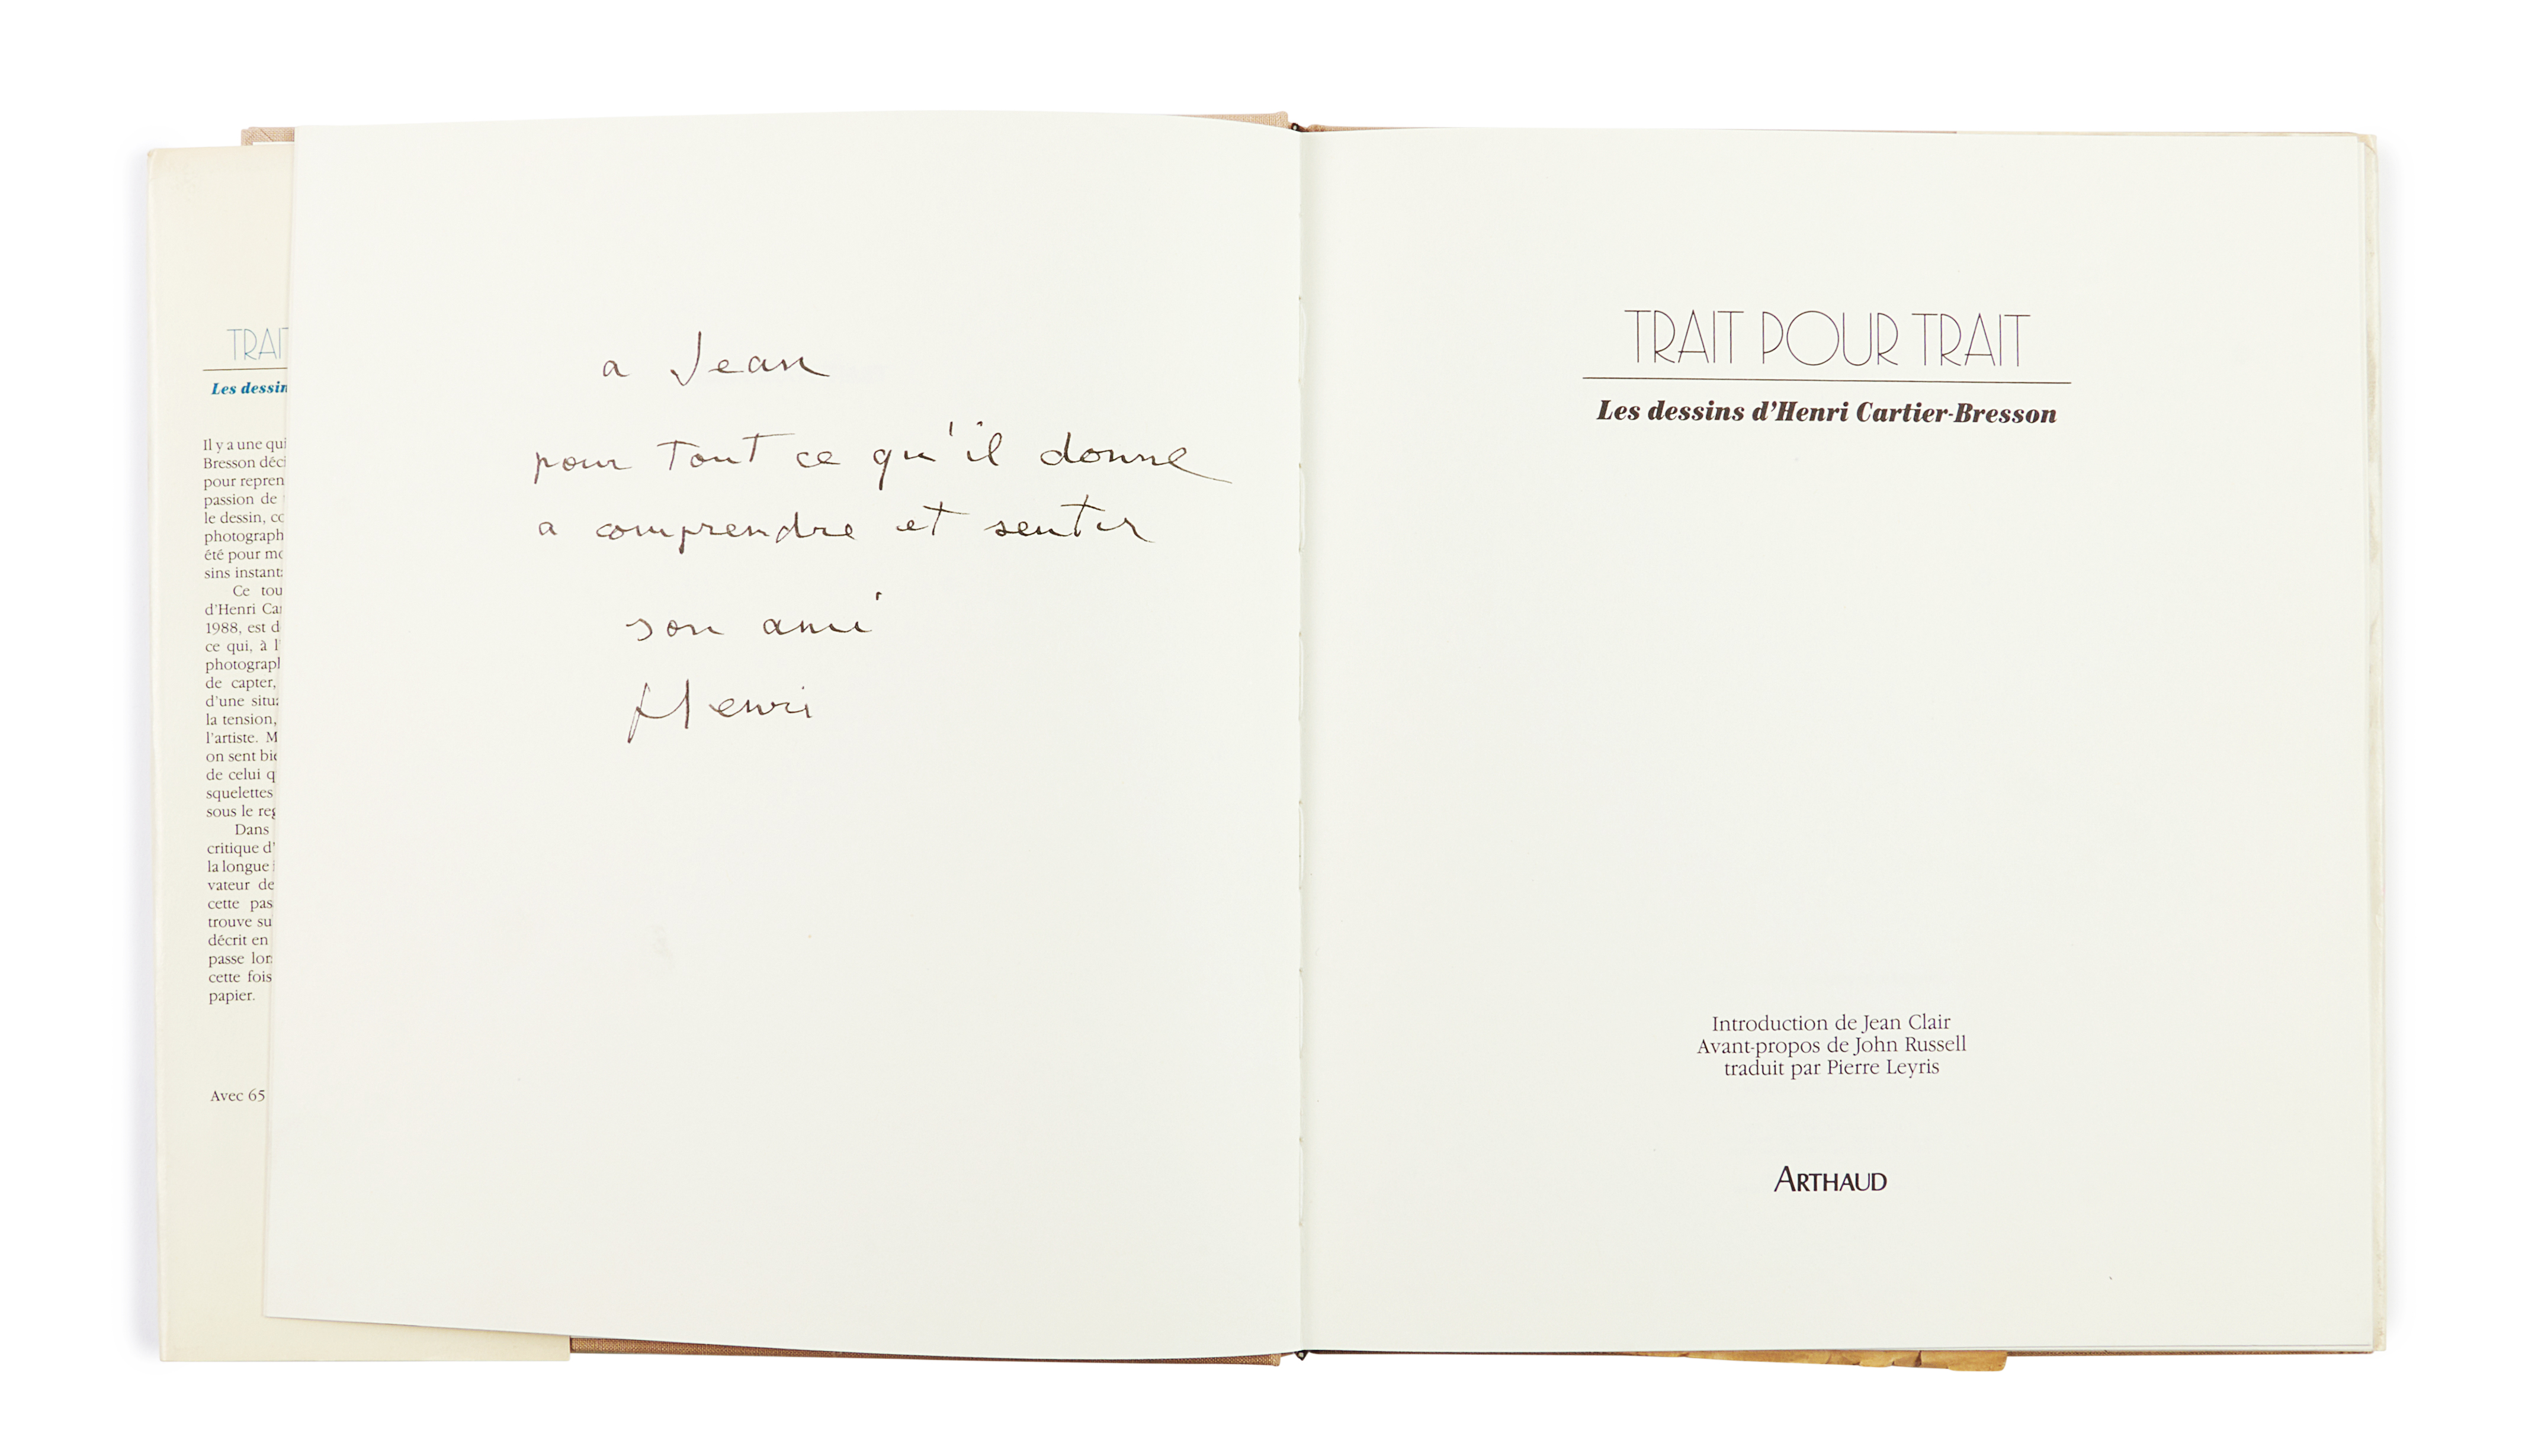 TRAIT
Les dessin
Il y a une qui
Bresson déci
pour repren
passion de
le dessin, co
photograph
été pour mo
sins instant
Ce tou
d'Henri Car
1988, est d
ce qui, à l'
photograph
de capter,
d'une situa
la tension,
l'artiste. M
on sent bie
de celui q
squelettes
sous le reg
Dans
critique d'
la longue
vateur de
cette pas
trouve su
décrit en
passe lor
cette fois
papier.
Avec 65
a Jean
pour tout ce qu'il donne
a comprendre et sentir
son ami
Henri
TRAIT POUR TRAIT
Les dessins d'Henri Cartier-Bresson
Introduction de Jean Clair
Avant-propos de John Russell
traduit par Pierre Leyris
ARTHAUD